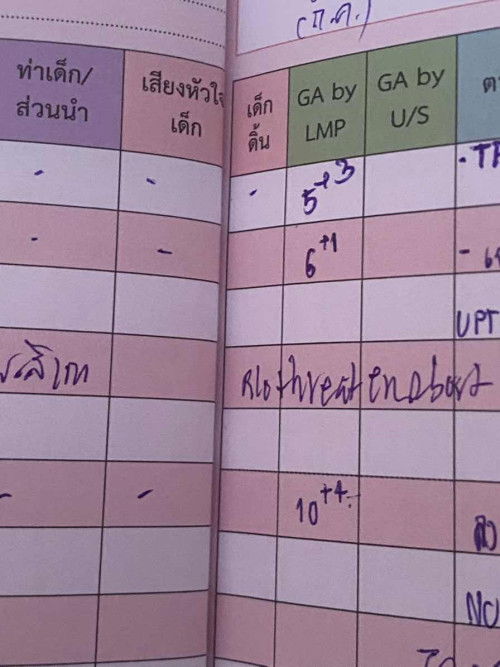 (ก.ค.)
ท่าเด็ก/
ส่วนนำ
เสียงหัวใจ
เด็ก
เด็ก
ดิ้น
GA by
LMP
GA by
U/S
- - - 5+3
- - 6+1
UPT
R/o threaten abort
- - 10+4